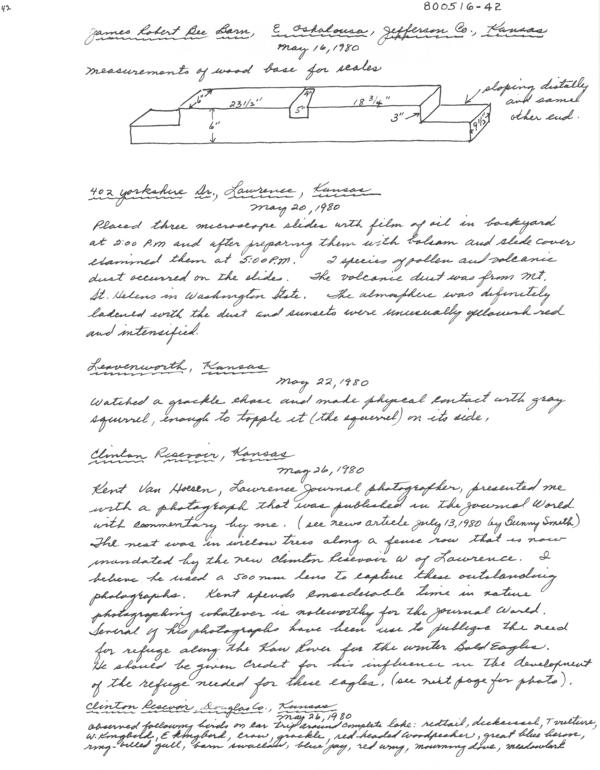 42
800516-42
James Robert Dee Barn, E Oskaloosa, Jefferson Co., Kansas
May 16, 1980
measurements of wood base for scales
6"
23 1/2"
4"
5"
18 3/4"
3"
6"
9 1/2"
sloping distally
and same
other end.
402 Yorkshire Dr., Lawrence, Kansas
May 20, 1980
Placed three microscope slides with film of oil in backyard
at 2:00 P.M and after preparing them with balsam and slide cover
examined them at 5:00 P.M. 2 species of pollen and volcanic
dust occurred on the slides. The volcanic dust was from Mt.
St. Helens in Washington State. The atmosphere was definitely
ladened with the dust and sunsets were unusually yellowish red
and intensified.
Leavenworth, Kansas
May 22, 1980
Watched a grackle chase and make physical contact with gray
squirrel, enough to topple it (the squirrel) on its side.
Clinton Resevoir, Kansas
May 26, 1980
Kent Van Hoesen, Lawrence Journal photographer, presented me
with a photograph that was published in the Journal World
with commentary by me. (see news article July 13, 1980 by Bunny Smith)
The nest was in willow trees along a fence row that is now
inundated by the new Clinton Resevoir W of Lawrence. I
believe he used a 500 mm lens to capture these outstanding
photographs. Kent spends considerable time in nature
photographing whatever is noteworthy for the Journal World.
Several of his photographs have been use to publize the need
for refuge along the Kaw River for the winter Bald Eagles.
He should be given credit for his influence in the development
of the refuge needed for these eagles. (see next page for photo).
Clinton Resevoir, Douglas Co., Kansas
May 26, 1980
observed following birds on car trip around complete lake: redtail, dickcissel, T vulture,
W. Kingbird, E kingbird, crow, grackle, red headed woodpecker, great blue heron,
ring-billed gull, barn swallow, blue jay, red wing, mourning dove, meadowlark